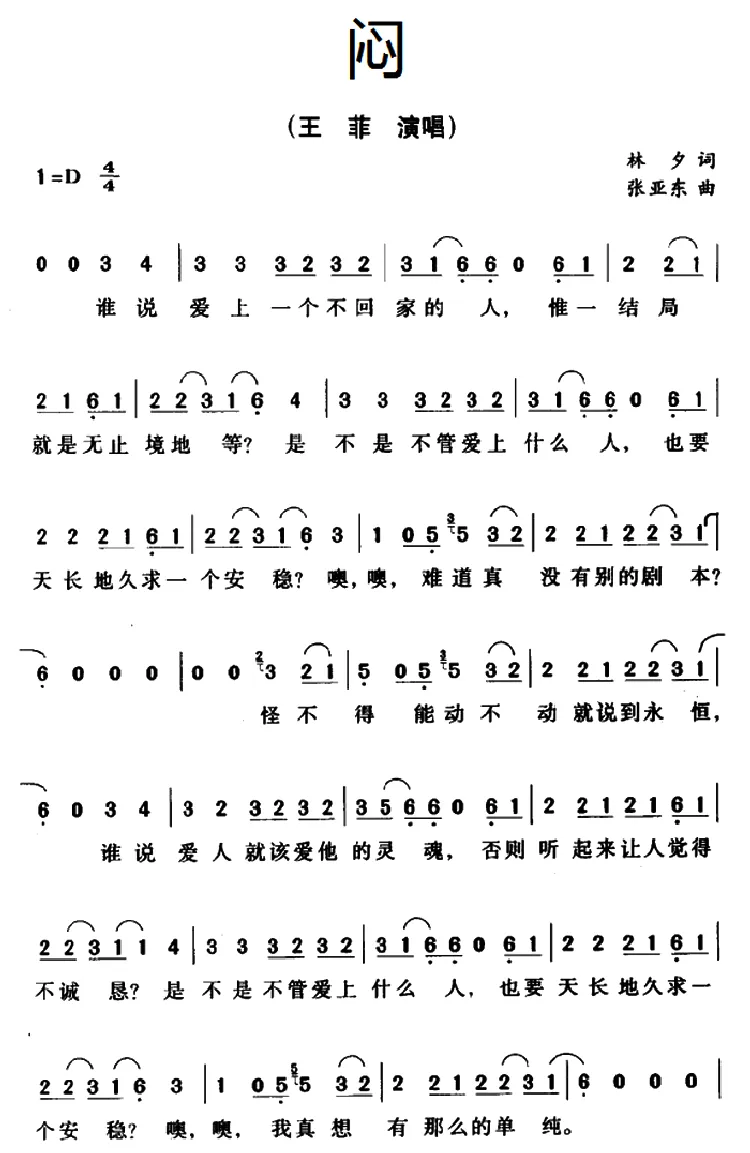 闷
（王 菲 演唱）
1=D 4/4
林 夕 词
张亚东 曲
0 0 3 4 | 3 3 3 2 3 2 | 3 1 6 6 0 6 1 | 2 2 1 |
谁 说 爱 上 一 个 不 回 家 的 人， 惟 一 结 局
2 1 6 1 | 2 2 3 1 6 4 | 3 3 3 2 3 2 | 3 1 6 6 0 6 1 |
就 是 无 止 境 地 等？ 是 不 是 不 管 爱 上 什 么 人， 也 要
2 2 2 1 6 1 | 2 2 3 1 6 3 | 1 0 5 3 5 3 2 | 2 2 1 2 2 3 1 |
天 长 地 久 求 一 个 安 稳？ 噢，噢， 难 道 真 没 有 别 的 剧 本？
6 0 0 0 | 0 0 2 3 2 1 | 5 0 5 3 5 3 2 | 2 2 1 2 2 3 1 |
怪 不 得 能 动 不 动 就 说 到 永 恒，
6 0 3 4 | 3 2 3 2 3 2 | 3 5 6 6 0 6 1 | 2 2 1 2 1 6 1 |
谁 说 爱 人 就 该 爱 他 的 灵 魂， 否 则 听 起 来 让 人 觉 得
2 2 3 1 1 4 | 3 3 3 2 3 2 | 3 1 6 6 0 6 1 | 2 2 2 1 6 1 |
不 诚 恳？ 是 不 是 不 管 爱 上 什 么 人， 也 要 天 长 地 久 求 一
2 2 3 1 6 3 | 1 0 5 5 5 3 2 | 2 2 1 2 2 3 1 | 6 0 0 0 |
个 安 稳？ 噢，噢， 我 真 想 有 那 么 的 单 纯。